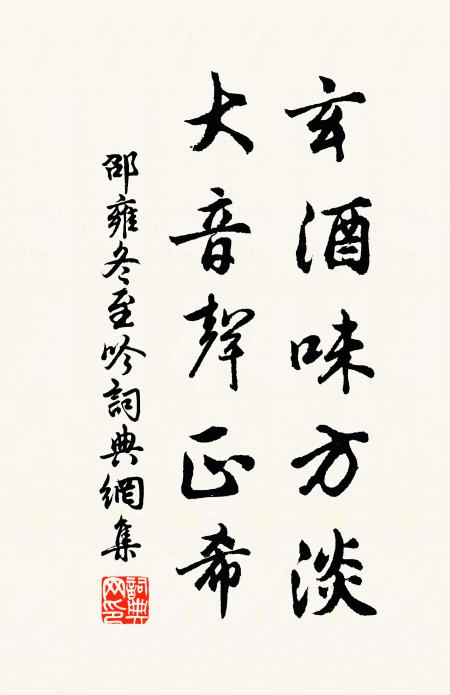 玄酒味方淡
大音聲正希
邵雍冬至吟詞典網集
詞典
网印